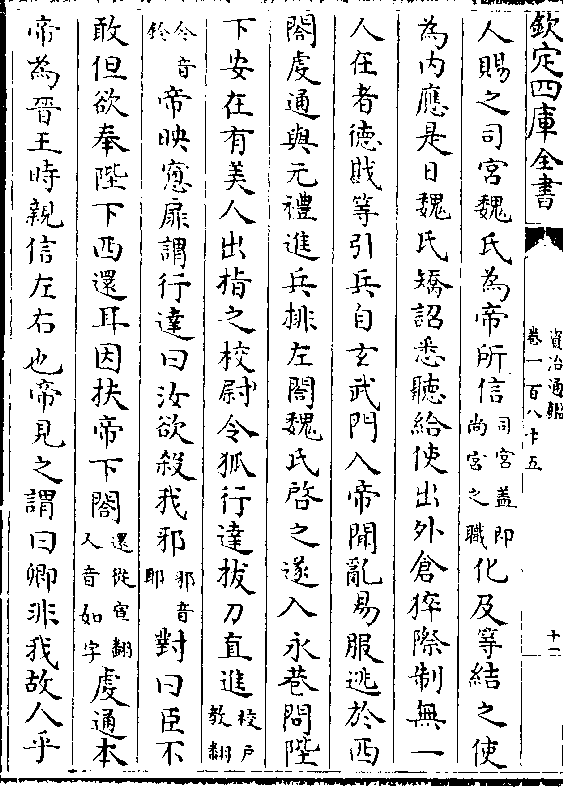 欽定四庫全書
資治通鑑
卷一百八十五
十一
人賜之司宮魏氏為帝所信司宮蓋即尚宮之職化及等結之使
為内應是日魏氏矯詔悉聽給使出外倉猝際制無一
人在者德戡等引兵自玄武門入帝聞亂易服逃於西
閤䖍通與元禮進兵排左閤魏氏啓之遂入永巷問陛
下安在有美人出指之校尉令狐行達拔刀直進校户教翻
令音鈴帝映窻扉謂行達曰汝欲殺我邪邪音耶對曰臣不
敢但欲奉陛下西還耳因扶帝下閤還從宣翻又音如字䖍通本
帝為晉王時親信左右也帝見之謂曰卿非我故人乎